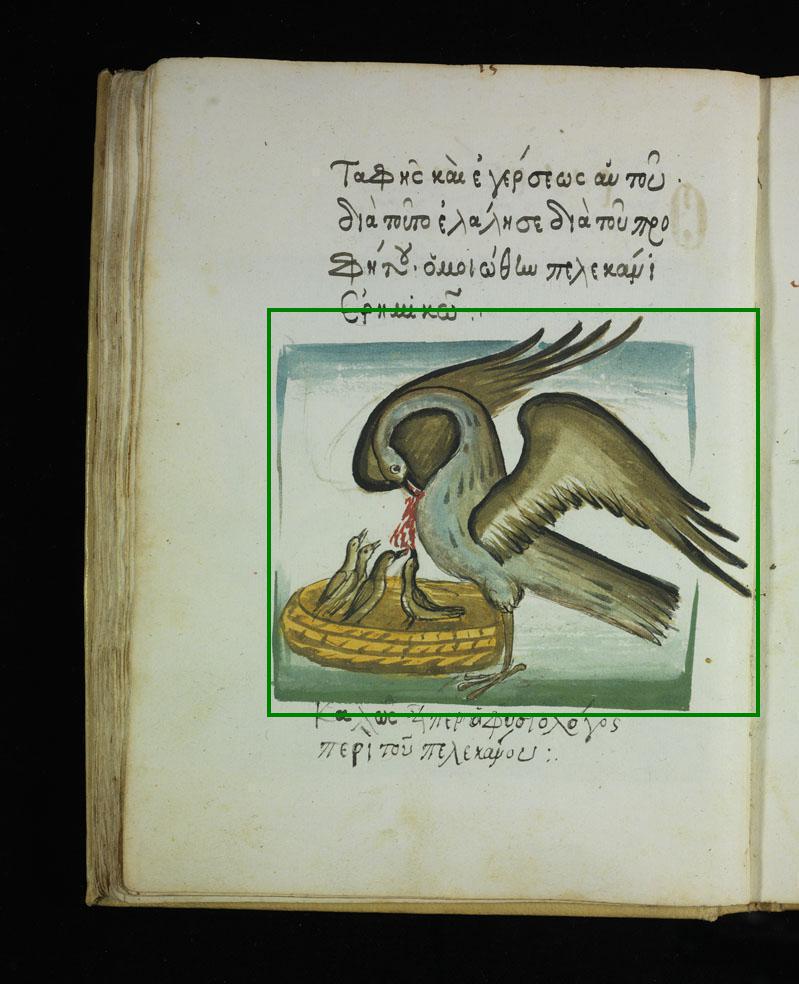 Ταφῆς καὶ ἐγέρσεως αὐτοῦ.
διὰ τοῦτο ἐλάλησε διὰ τοῦ προ
φήτου. ὁμοιώθην πελεκάνι
ἐρημικῶ:
Καλῶς εἶπεν ὁ φυσιολόγος
περὶ τοῦ πελεκάνου:.